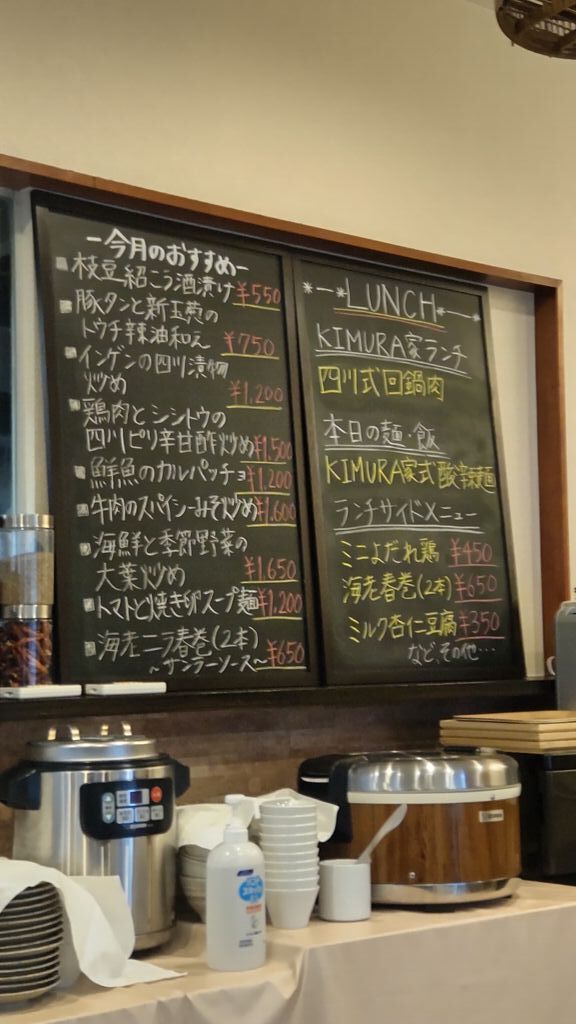 -今月のおすすめ-
枝豆紹こう酒漬け ¥550
豚タンと新玉葱の
トウチ辣油和え ¥750
インゲンの四川漬物
炒め ¥1,200
鶏肉とシシトウの
四川ピリ辛甘酢炒め ¥1,500
鮮魚のカルパッチョ ¥1,200
牛肉のスパイシーみそ炒め ¥1,600
海鮮と季節野菜の
大葉炒め ¥1,650
トマトと焼きねぎスープ麺 ¥1,200
海老ニラ春巻(2本)
~サンラーソース~ ¥650
LUNCH
KIMURA家ランチ
四川式回鍋肉
本日の麺・飯
KIMURA家式酸辣麺
ランチサイドメニュー
ミニよだれ鶏 ¥450
海老春巻(2本) ¥650
ミルク杏仁豆腐 ¥350
など、その他…